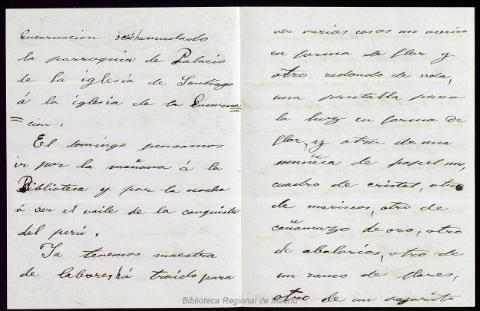 Encarnacion se ha mudado
la parroquia de Palacio
de la iglesia de Santiago
á la iglesia de la Encarna=
=cion.
El domingo pensamos
ir por la mañana á la
Biblioteca y por la noche
á ver el vaile de la conquista
del perú.
Ya tenemos maestra
de labores, há traido para
ver varias cosas un acerico
en forma de flor y
otro redondo de seda,
una pantalla para
la luz en forma de
flor, y otra de una
muñeca de papel, un
cuadro de cristal, otro
de mariscos, otro de
cañamazo de oro, otro
de abalorios, otro de
un ramo de flores,
otro de un
Biblioteca Regional de Madrid